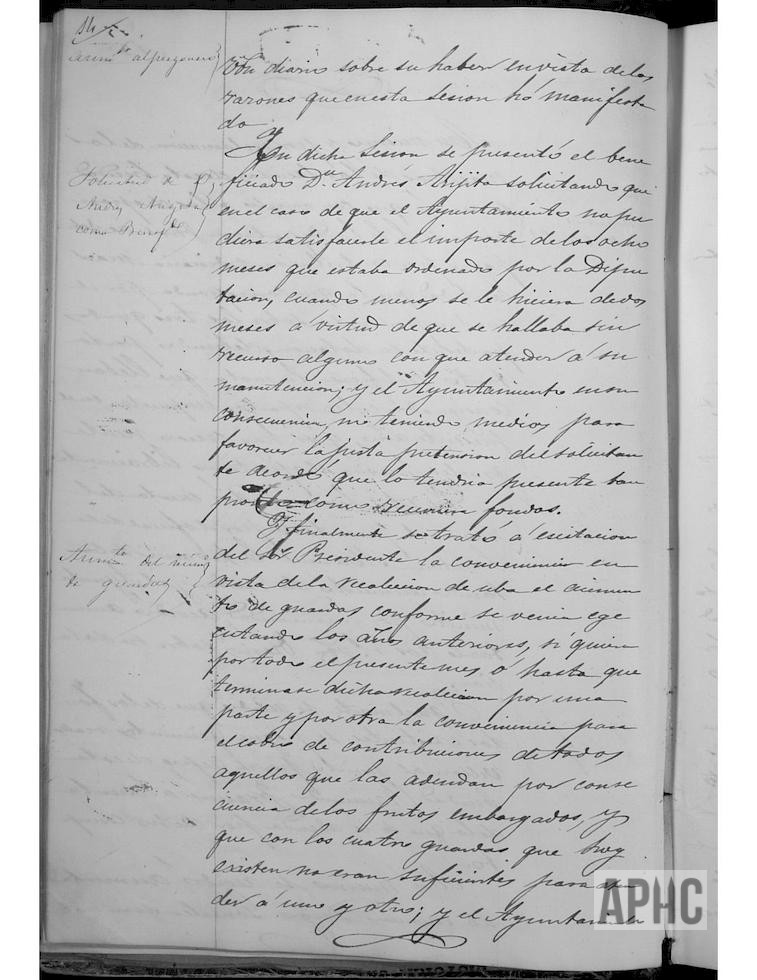 Aumto al pregonero
rvon diario sobre su haber en vista de las
razones que en esta Sesion há manifesta
do
Solicitud de D.
Andres Arijita
como Benefdo
En dicha Sesion se presentó el bene
ficiado Dn Andrés Arijita solicitando que
en el caso de que el Ayuntamiento no pu
diera satisfacerle el importe de los ocho
meses que estaba ordenado por la Dipu
tacion, cuando menos se le hiciera de dos
meses á virtud de que se hallaba sin
recurso alguno con que atender á su
manutencion; y el Ayuntamiento en su
consecuencia, no teniendo medios para
favorecer la justa pretension del solicitan
te acordó que lo tendria presente tan
pronto como reuniera fondos.
Aumto del numo
de guardas
Y finalmente se trató á escitacion
del Sor Presidente la conveniencia en
vista de la recoleccion de uba el aumen
to de guardas conforme se venia ege
cutando los años anteriores, si quiera
por todo el presente mes ó hasta que
terminase dicha recoleccion por una
parte y por otra la conveniencia para
el cobro de contribuciones de todos
aquellos que las adeudan por conse
cuencia de los frutos embargados, y
que con los cuatro guardas que hoy
existen no eran suficientes para aten
der á uno y otro; y el Ayuntamiento
APHC